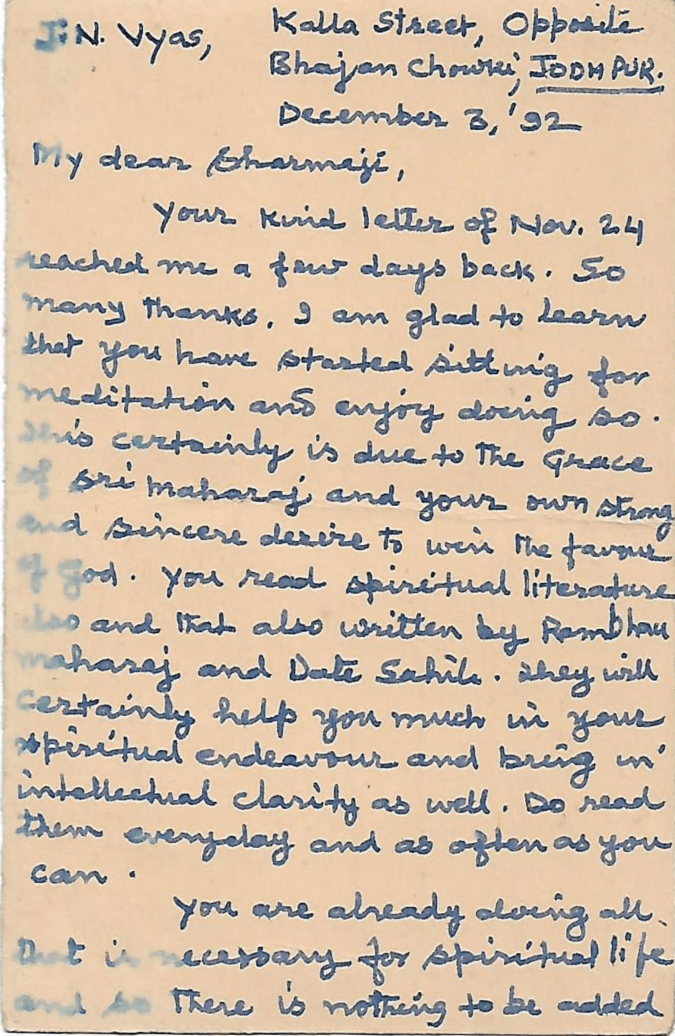 J. N. Vyas,
Kalla Street, Opposite
Bhajan Chowki, JODHPUR.
December 3, '92
My dear Sharmaji,
Your kind letter of Nov. 24
reached me a few days back. So
many thanks. I am glad to learn
that you have started sitting for
meditation and enjoy doing so.
This certainly is due to the Grace
of Sri Maharaj and your own strong
and sincere desire to win the favour
of God. You read spiritual literature
also and that also written by Rambhau
Maharaj and Date Sahib. They will
certainly help you much in your
spiritual endeavour and bring in
intellectual clarity as well. Do read
them everyday and as often as you
can.
You are already doing all
that is necessary for spiritual life
and so there is nothing to be added